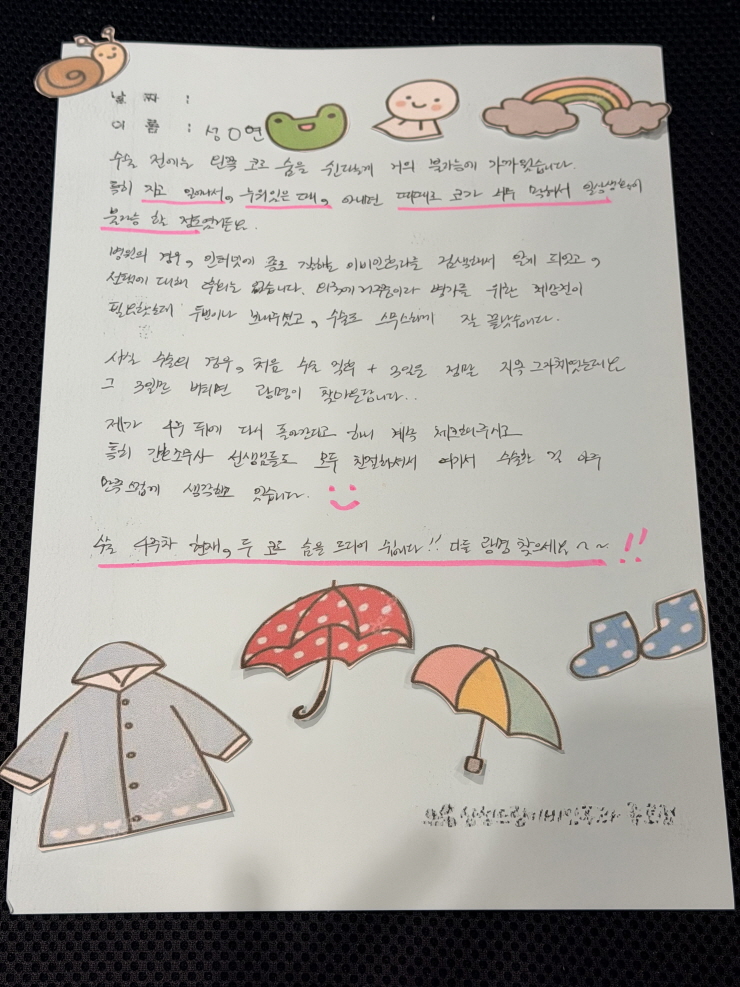 날 짜 :
이 름 : 성O연
수술 전에는 왼쪽 코로 숨을 쉰다는게 거의 불가능에 가까웠습니다.
특히 자고 일어나서, 누워있을 때, 아니면 때때로 코가 너무 막혀서 일상생활이
불가능 할 정도였거든요.
병원의 경우, 인터넷에 종로 잘하는 이비인후과를 검색해서 알게 되었고,
선택에 대해 후회는 없습니다. 외국에 거주중이라 병가를 위한 진단서가
필요했는데 두번이나 보내주셨고, 수술도 스무스하게 잘 끝났습니다.
사실 수술의 경우, 처음 수술 직후 + 3일은 정말 지옥 그자체였는데요
그 3일만 버티면 광명이 찾아온답니다..
제가 4주 뒤에 다시 돌아간다고 하니 계속 체크해주시고
특히 간호조무사 선생님들도 모두 친절하셔서 여기서 수술한 걸 아주
만족스럽게 생각하고 있습니다.
수술 4주차 현재, 두 코로 숨을 드디어 쉽니다!! 다들 광명 찾으세요~~ !!